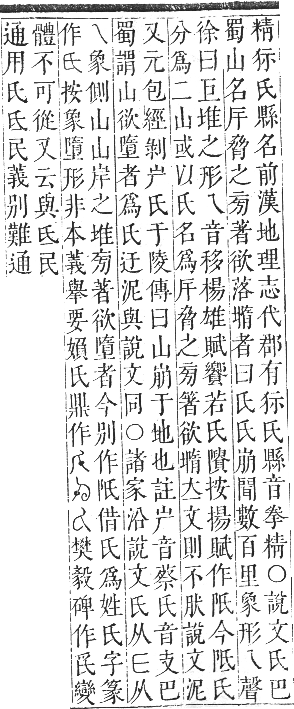 精狋氏縣名前漢地理志代郡有狋氏縣音拳精○說文氏巴
蜀山名厈脅之㫄著欲落墯者曰氏氏崩聞數百里象形乁聲
徐曰巨堆之形乁音移楊雄賦響若氏隤按揚賦作阺今阺氏
分爲二山或以氏名爲厈脅之㫄箸欲墯夳文則不肰說文泥
又元包經剝屵氏于陵傳曰山崩于地也註屵音蔡氏音支巴
蜀謂山欲墮者爲氏迂泥與說文同○諸家沿說文氏从㠯从
乁象側山山岸之堆㫄著欲墮者今別作阺借氏爲姓氏字篆
作氏按象墮形非本義舉要頞氏鼎作樊毅碑作變
體不可從又云與氐民
通用氏氐民義別難通